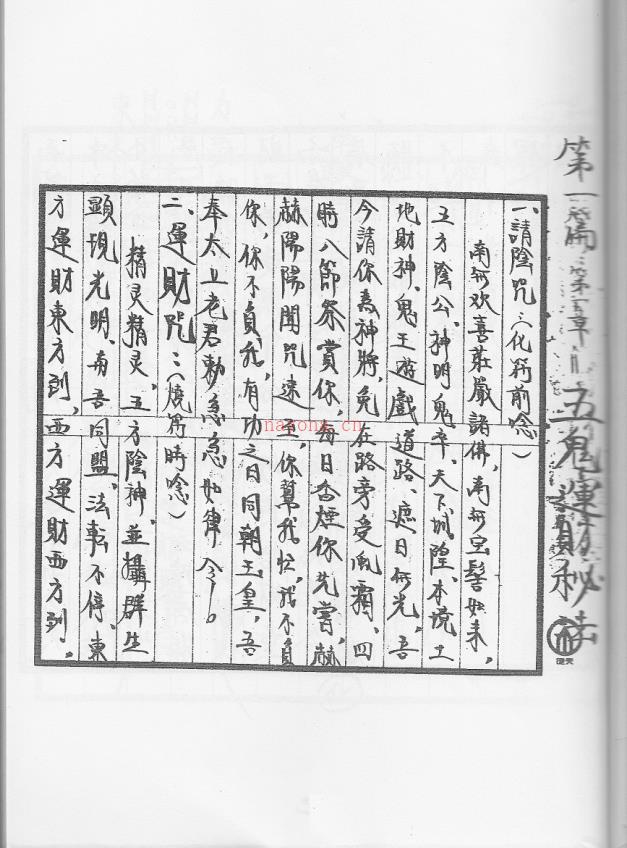 第一篇：第五章＝五鬼運財秘法
一、請陰咒：（化符前唸）
南無欢喜莊嚴諸佛，南無宝髻如来，
五方陰公、神明鬼卒、天下城隍、本境土
地財神、鬼王遊戲道路、遮日無光，吾
今請你為神將，免在路旁受風霜、四
時八節祭賞你，每日香煙你先嘗，赫
赫陽陽聞咒速至，你幫我忙，我不負
你，你不負我，有功之日同朝玉皇，吾
奉太上老君勅，急急如律令。
二、運財咒：（燒符時唸）
精灵精灵，五方陰神，並攝群生
顯現光明、与吾同盟、法転不停、東
方運財東方到，西方運財西方到。
nayona.cn